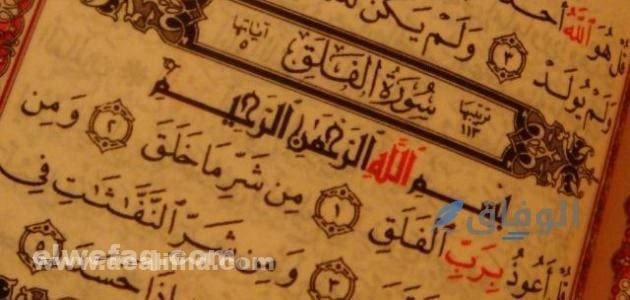 قُلْ هُوَ اللَّهُ أَحَدٌ
لَمْ يُولَدْ ٣ وَلَمْ يَكُن لَّهُ
ترتيبها ١١٣ سُورَةُ الفَلَقِ آياتها ٥
بِسْمِ اللَّهِ الرَّحْمَٰنِ الرَّحِيمِ
قُلْ أَعُوذُ بِرَبِّ الْفَلَقِ ١ مِن شَرِّ مَا خَلَقَ ٢ وَمِن
٣ وَمِن شَرِّ النَّفَّاثَاتِ فِي
إِذَا حَسَدَ ٥
الوفاق
alwefaq.com